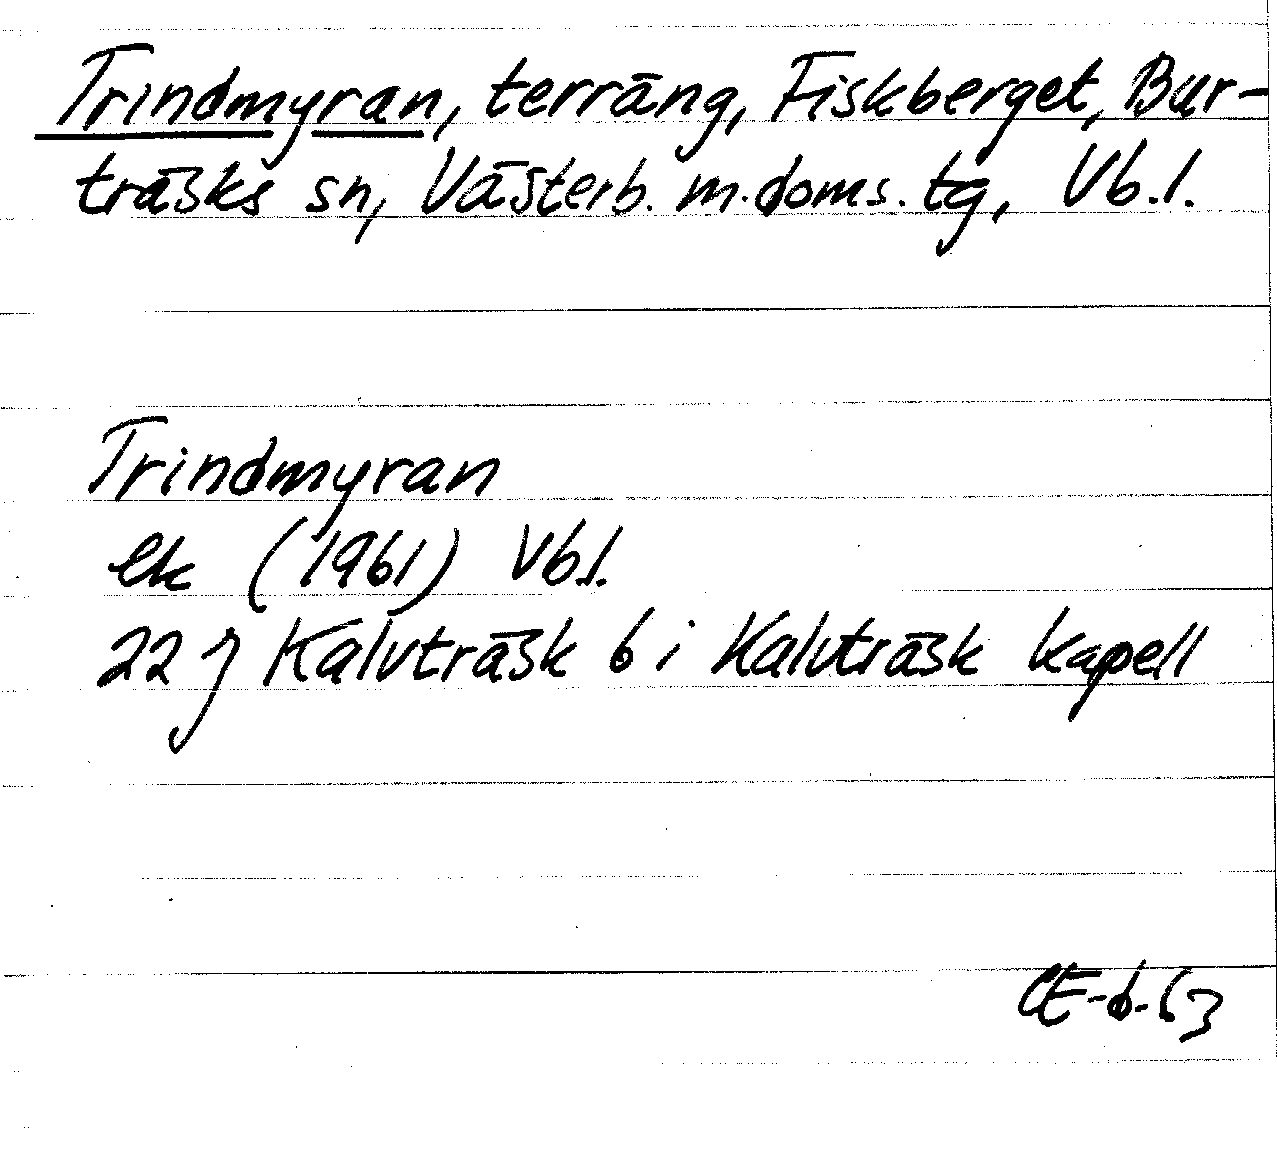 Trindmyran, terräng, Fiskberget, Bur-
träsks sn, Västerb. m. doms. tg, Vb.l.
Trindmyran
ek (1961) Vb.l.
22 J Kalvträsk b i Kalvträsk kapell
CE-b-63